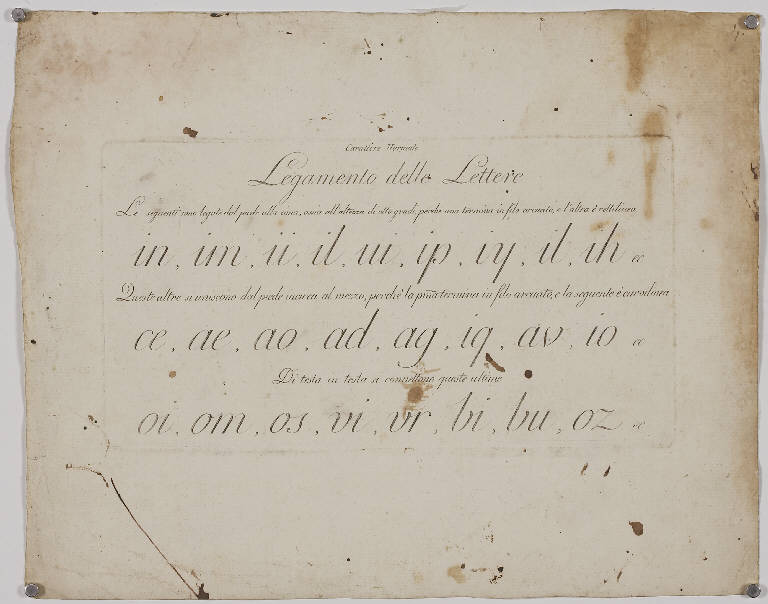 Carattere
Legamento delle Lettere
Le seguenti sono legate dal piede alla cima, ossia all'altezza di otto gradi, perchè una termina in filo arcuato, e l'altra è rettilinea
in, im, ii, il, ui, ip, iy, il, ih &c
Queste altre si uniscono dal piede incirca al mezzo, perchè la pma termina in filo arcuato, e la seguente è curvilinea
ce, ae, ao, ad, ag, iq, av, io &c
Di testa in testa si connettono queste ultime
oi, om, os, vi, vr, bi, bu, oz &c